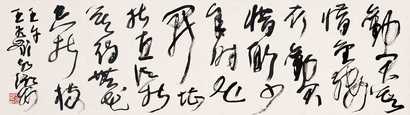 勸君莫
惜金縷
衣勸君
惜取少
年時花
開堪
折直須折
莫待無花
空折枝
壬午